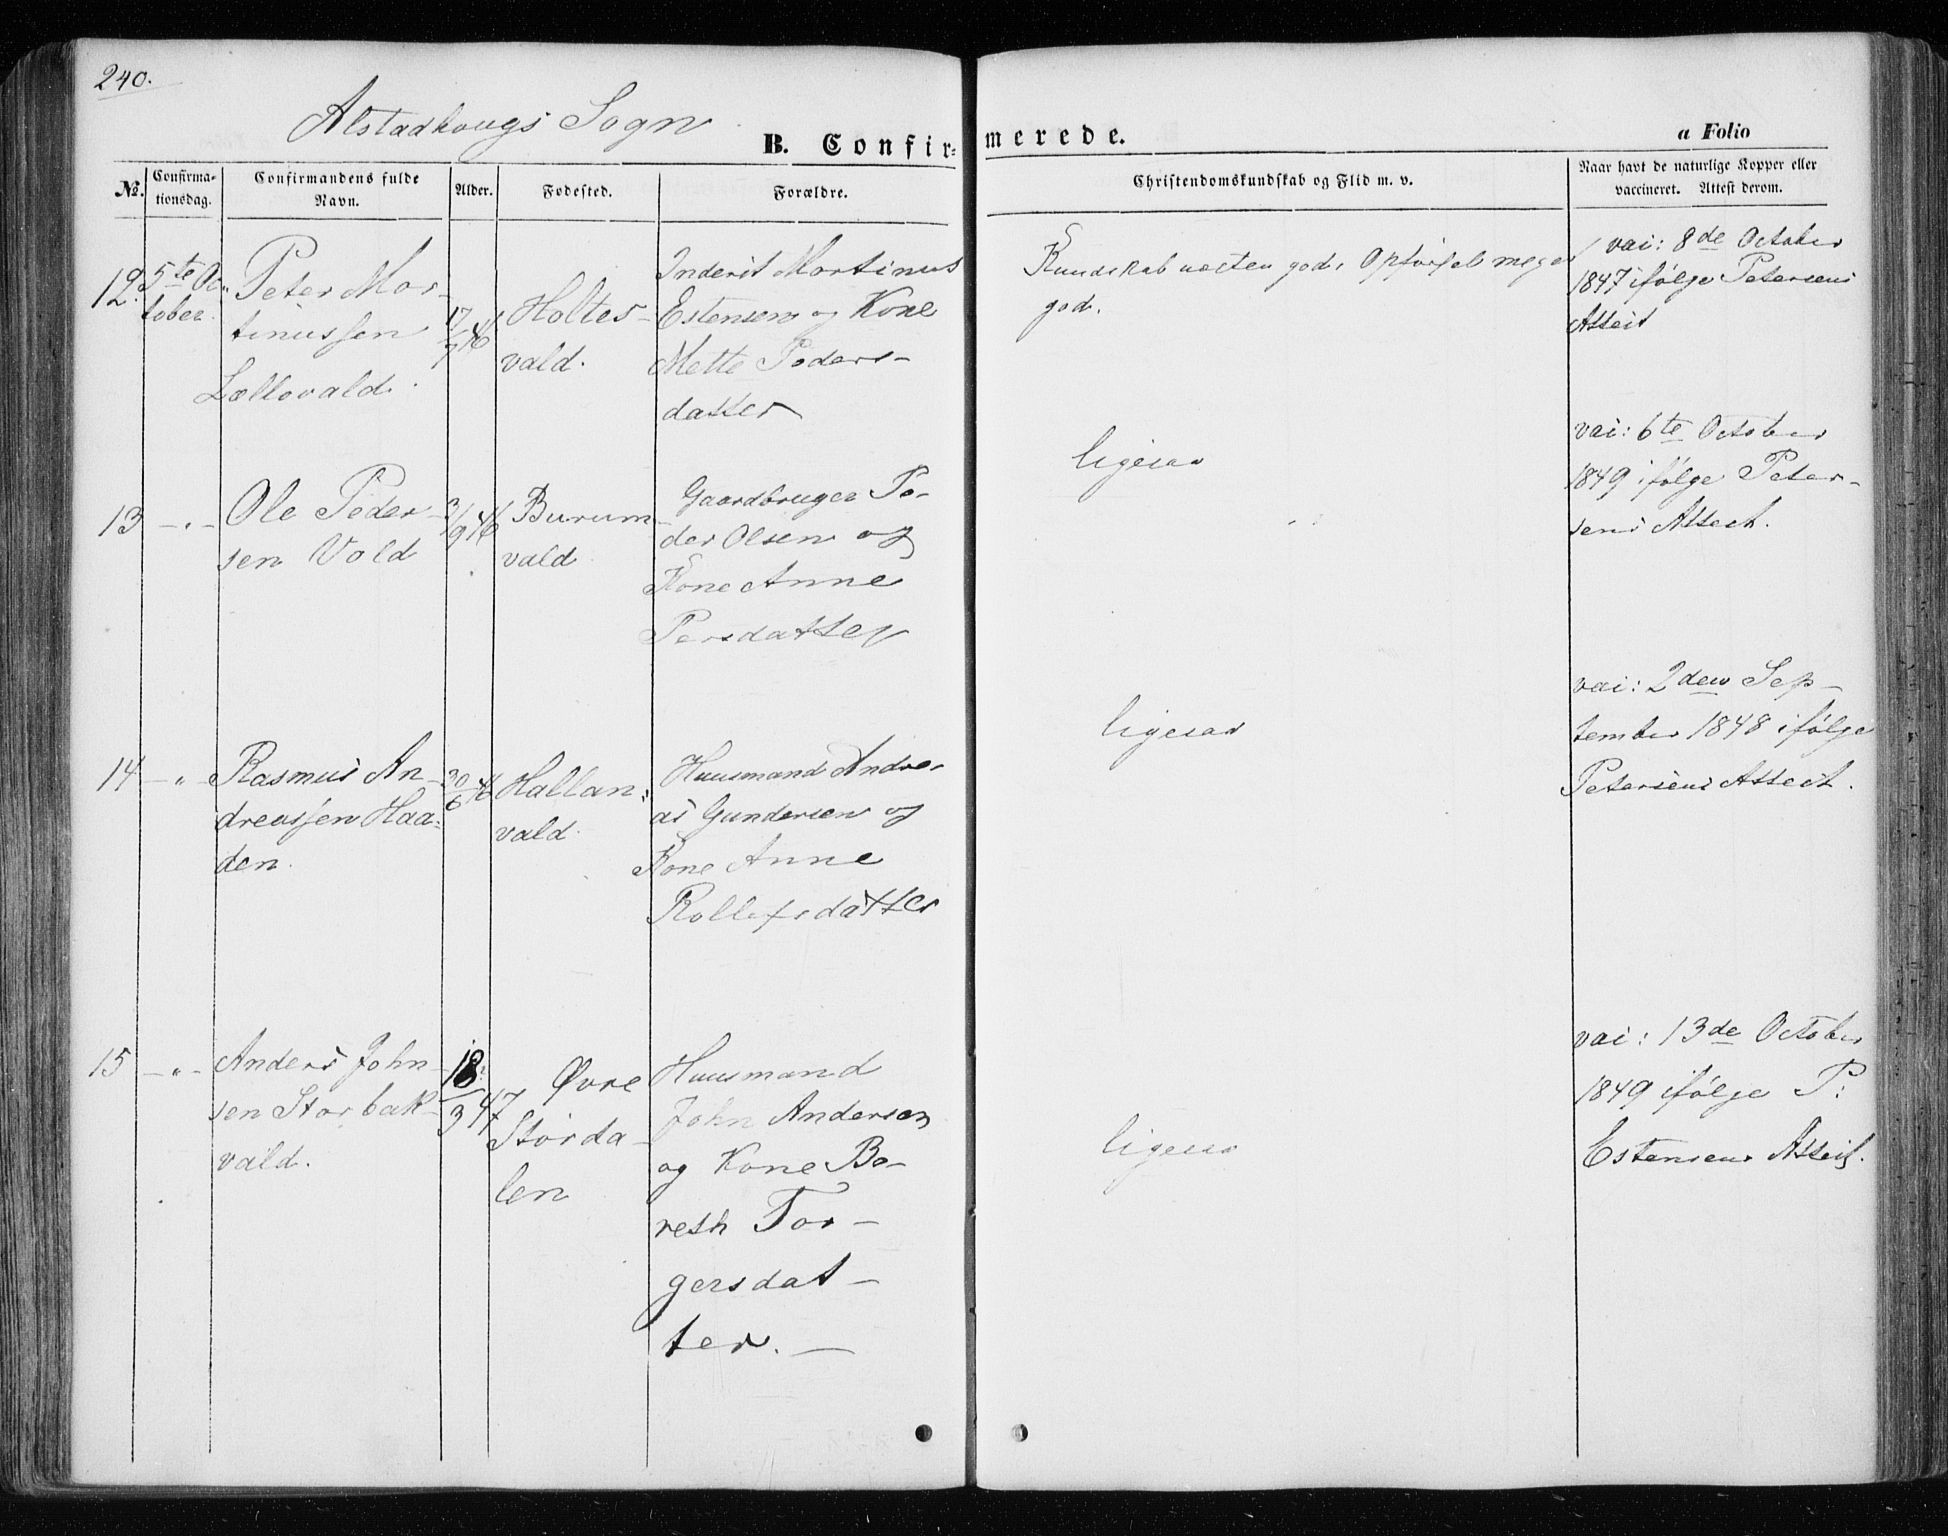 240.
Alstadhougs Sogn
B. Confirmerede.
a Folio
No. Confirmationsdag. Confirmandens fulde Navn. Alder. Fødested. Forældre. Christendomskundskab og Flid m. v. Naar havt de naturlige Kopper eller vaccineret. Attest derom.
12. 5te October
Peter Mor-
tinussen
17/7 46
Holtes-
vald.
Inderst Mortinus
Estensen og Kone
Mette Peders-
datter
Kundskab næsten god, Opførsel meget
god.
vai: 8de October
1847 ifølge Petersens
Attest
13 -"-
Ole Peder-
sen Vold
3/9 46
Burum-
vald
Gaardbruger Pe-
der Olsen og
Kone Anne
Persdatter
ligesaa
vai: 6te October
1849 ifølge Peter-
sens Attest.
14 -"
Rasmus An-
dreassen Haa-
den.
20/6 46
Hallan:
vald.
Huusmand Andre-
as Gundersen og
Kone Anne
Rollefsdatter
ligesaa
vai: 2den Sep-
tember 1848 ifølge
Petersens Attest.
15 -"-
Anders John-
sen Storbak-
vald.
18/3 47
Øvre
Størda-
len
Huusmand
John Andersen
og Kone Be-
reth Tor-
gersdat-
ter.
ligesaa
vai: 13de October
1849 ifølge P:
Estensens Attest.